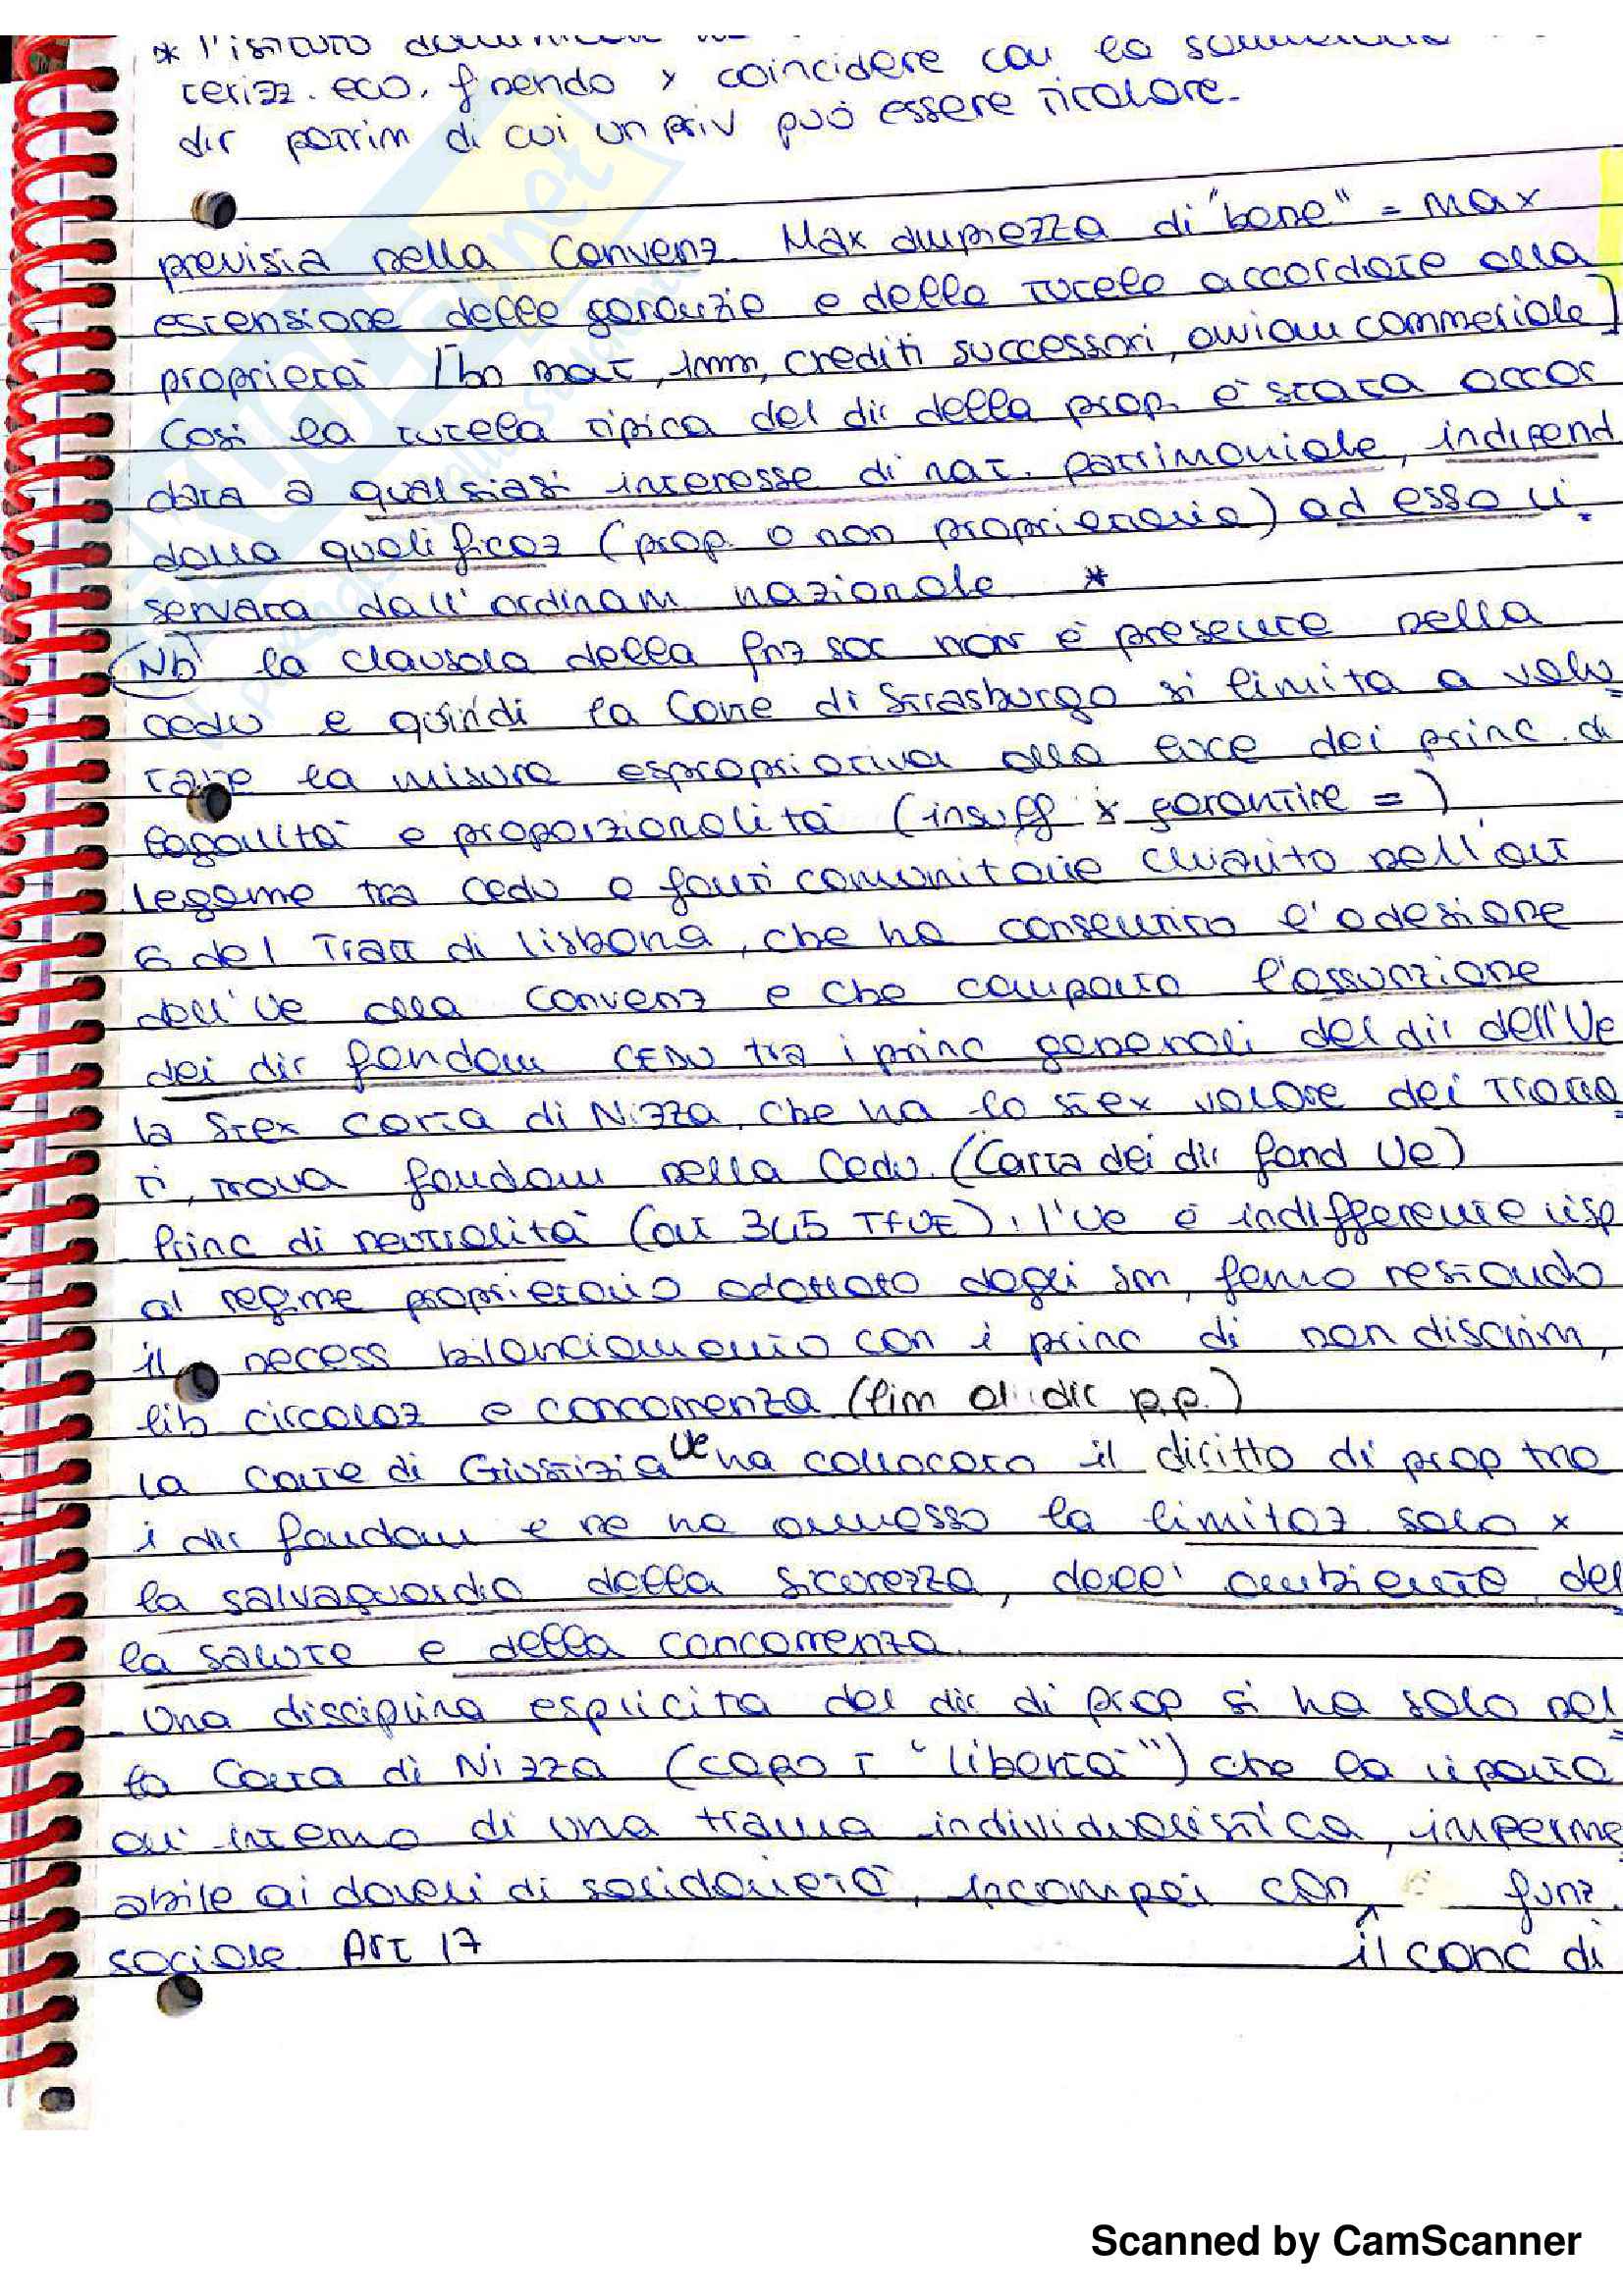 * l'istituto
terizz. eco. finendo x coincidere con la
dir patrim di cui un priv può essere titolare.
prevista nella Convenz. Max ampiezza di "bene" = Max
estensione delle garanzie e della tutela accordate alla
proprietà [bn mat, imm, crediti successori, avviam commeriale]
Così la tutela tipica del dir della prop. è stata accor
data a qualsiasi interesse di nat. patrimoniale, indipend
dalla qualificaz (prop. o non proprietaria) ad esso ri.
servata dall'ordinam nazionale. *
Nb la clausola della fnz soc non è presente nella
cedu e quindi la Corte di Strasburgo si limita a valu
tare la misura espropriativa alla luce dei princ. di
legalità e proporzionalità (insuff x garantire = )
Legame tra cedu e fonti comunitarie chiarito nell'art
6 del Tratt di Lisbona, che ha consentito l'adesione
dell'Ue alla convenz e che comporta l'assunzione
dei dir fondam CEDU tra i princ generali del dir dell'Ue
la stex carta di Nizza, che ha lo stex valore dei tratta
ti, trova fondam nella Cedu. (Carta dei dir fond Ue)
Princ di neutralità (art 345 TFUE): l'Ue è indifferente risp
al regime proprietario adottato dagli sm, fermo restando
il necess bilanciamento con i princ di non discrim,
lib circolaz e concorrenza (lim al dir p.p.)
la corte di Giustizia Ue ha collocato il diritto di prop tra
i dir fondam e ne ha ammesso la limitaz. solo x
la salvaguardia della sicurezza, dell'ambiente, del
la salute e della concorrenza.
- Una disciplina esplicita del dir di prop si ha solo nel
la Carta di Nizza (capo I "libertà") che la riporta
all'interno di una trama individualistica, imperme
abile ai doveri di solidarietà, incompat con funz.
sociale. Art 17 il conc di
Scanned by CamScanner